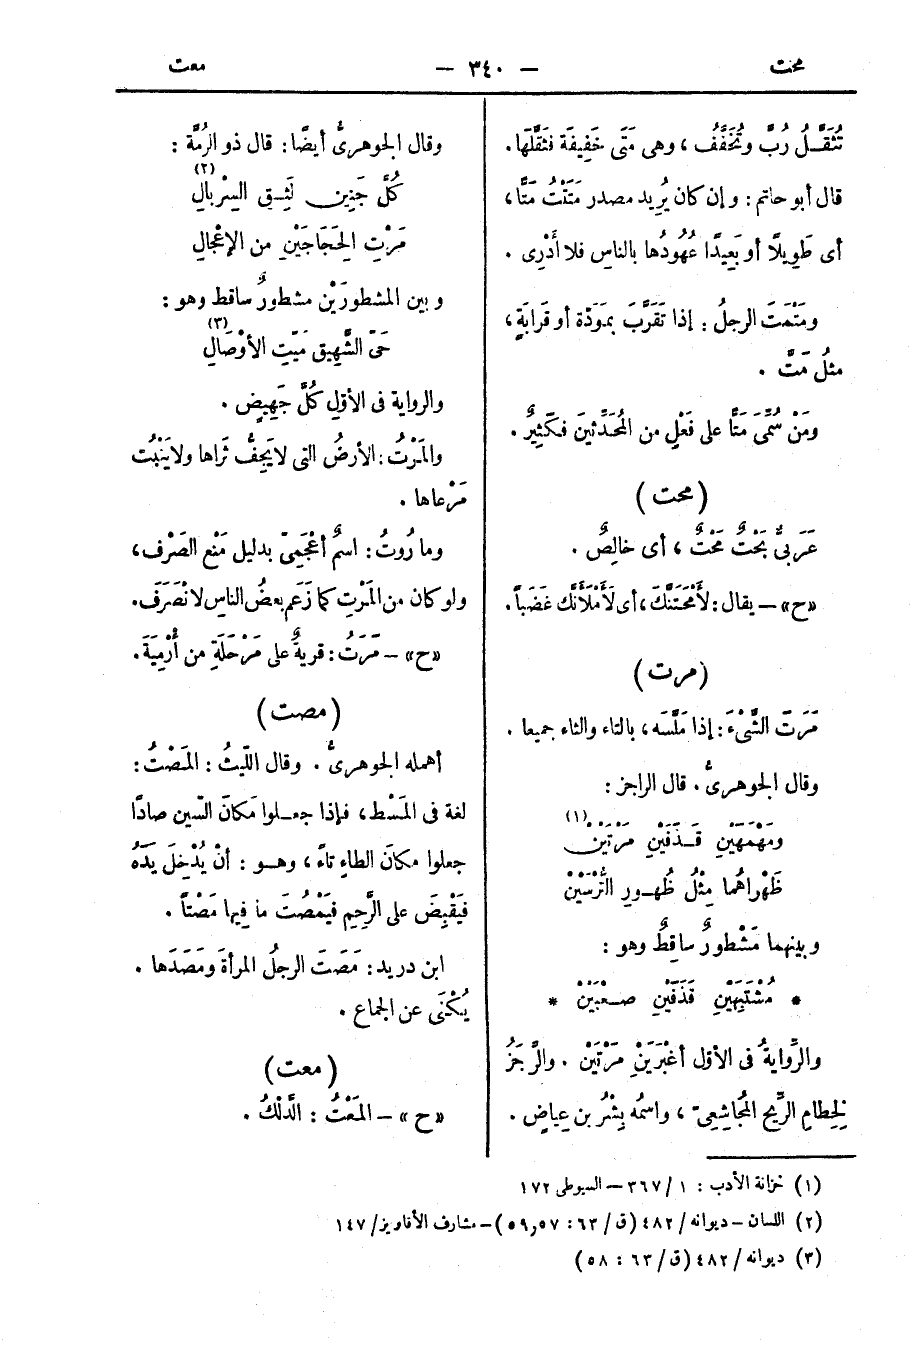 محت
— ٣٤٠ —
معت
تُثَقَّـلُ رُبَّ وتُخَفَّفُ ، وهى مَتَى خَفِيفَة فثَقَّلَها.
قال أبو حاتم : وإن كان يُرِيد مصدر مَتَتْتُ مَتًّا ،
أى طَوِيلًا أو بَعِيدًا عُهُودُها بالناسِ فلا أَدْرِى .
ومَتْمَتَ الرجلُ : إذا تَقَرَّبَ بمَوَدَّة أو قَرابَةٍ ،
مثلُ مَتَّ .
ومَنْ سُمِّىَ مَتًّا على فَعْلٍ من المُحَدِّثِينَ فكَثِيرٌ .
(محت)
عَرَبِىٌّ بَحْتٌ مَحْتٌ ، أى خالِصٌ .
«ح» — يقال : لَأَمْحَتَنَّكَ ، أى لَأَمْلَأَنَّكَ غَضَباً .
(مرت)
مَرَتَ الشَّىْءَ : إذا مَلَّسَه ، بالتاء والثاء جميعا .
وقال الجوهرىُّ . قال الراجز :
ومَهْمَهَيْنِ قَـذَفَيْنِ مَرْتَيْنْ (١)
ظَهْراهُما مِثْلُ ظُهُـورِ التُّرْسَيْنْ
وبينهما مَشْطورٌ ساقِطٌ وهو :
* مُشْتَبِهَيْنِ قَذَفَيْنِ صَـعْبَيْنْ *
والرِّوايةُ فى الأوّل أَغْبَرَيْنِ مَرْتَيْنْ . والرَّجَزُ
لِخِطامِ الرِّيحِ المُجاشِعِىّ ، واسمُه بِشْرُ بن عِياضٍ .
وقال الجوهرىُّ أيضًا : قال ذو الرُّمَّة :
كُلَّ جَنِينٍ لَثِـقِ السِّرْبالِ (٢)
مَرْتِ الحَجَاجَيْنِ من الإعْجالِ
وبين المشطورَيْن مشطورٌ ساقط وهو :
حَىِّ الشَّهِيقِ مَيِّتِ الأَوْصَالِ (٣)
والرواية فى الأوّلِ كُلَّ جَهِيضٍ .
والمَرْتُ : الأرضُ التى لا يَجِفُّ ثَراها ولا يَنْبُت
مَرْعاها .
وما رُوتُ : اسمٌ أَعْجَمِىّ بدليل مَنْعِ الصَّرْف ،
ولو كان من المَرْتِ كما زَعَم بعضُ الناسِ لانْصَرَفَ .
«ح» — مَرَتُ : قريةٌ على مَرْحَلَةٍ من أُرْمِيَةَ .
(مصت)
أهمله الجوهرىُّ . وقال اللَّيثُ : المَصْتُ :
لغة فى المَسْط ، فإذا جعـلوا مَكانَ السِّين صادًا
جعلوا مكانَ الطاءِ تاءً ، وهـو : أنْ يُدْخِلَ يَدَهُ
فيَقْبِضَ على الرَّحِمِ فيَمْصُتَ ما فِيها مَصْتاً .
ابن دريد : مَصَتَ الرجلُ المرأةَ ومَصَدَها .
يُكْنَى عن الجماع .
(معت)
«ح» — المَعْتُ : الدَّلْكُ .
(١) خزانة الأدب : ١/٣٦٧ — السيوطى ١٧٢
(٢) اللسان — ديوانه /٤٨٢ (ق/٦٣ : ٥٧,٥٩) — مشارف الأقاويز/١٤٧
(٣) ديوانه /٤٨٢ (ق/٦٣ : ٥٨)